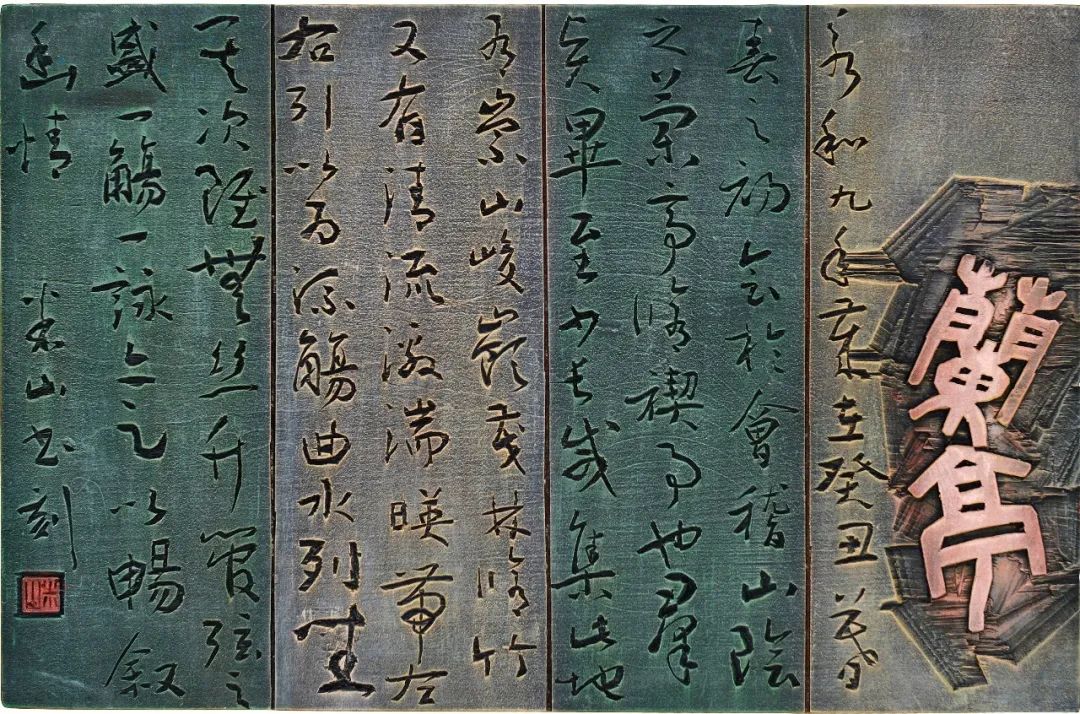 蘭亭
永和九年歲在癸丑暮
春之初会於會稽山陰
之蘭亭脩禊事也羣
賢畢至少長咸集此地
有崇山峻嶺茂林脩竹
又有清流激湍暎帶左
右引以為流觴曲水列坐
其次雖無絲竹管弦之
盛一觴一詠亦足以暢叙
幽情 米山书刻